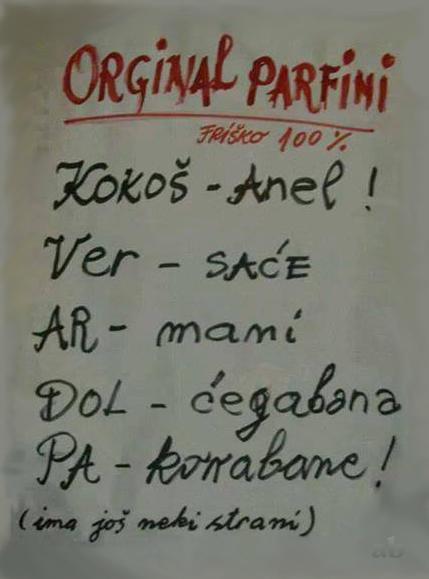 ORGINAL PARFINI
FRIŠKO 100%
Kokoš - Anel !
Ver - SAĆE
AR - mani
DOL - ćegabana
PA - korrabane !
(ima još neki strani)
ab